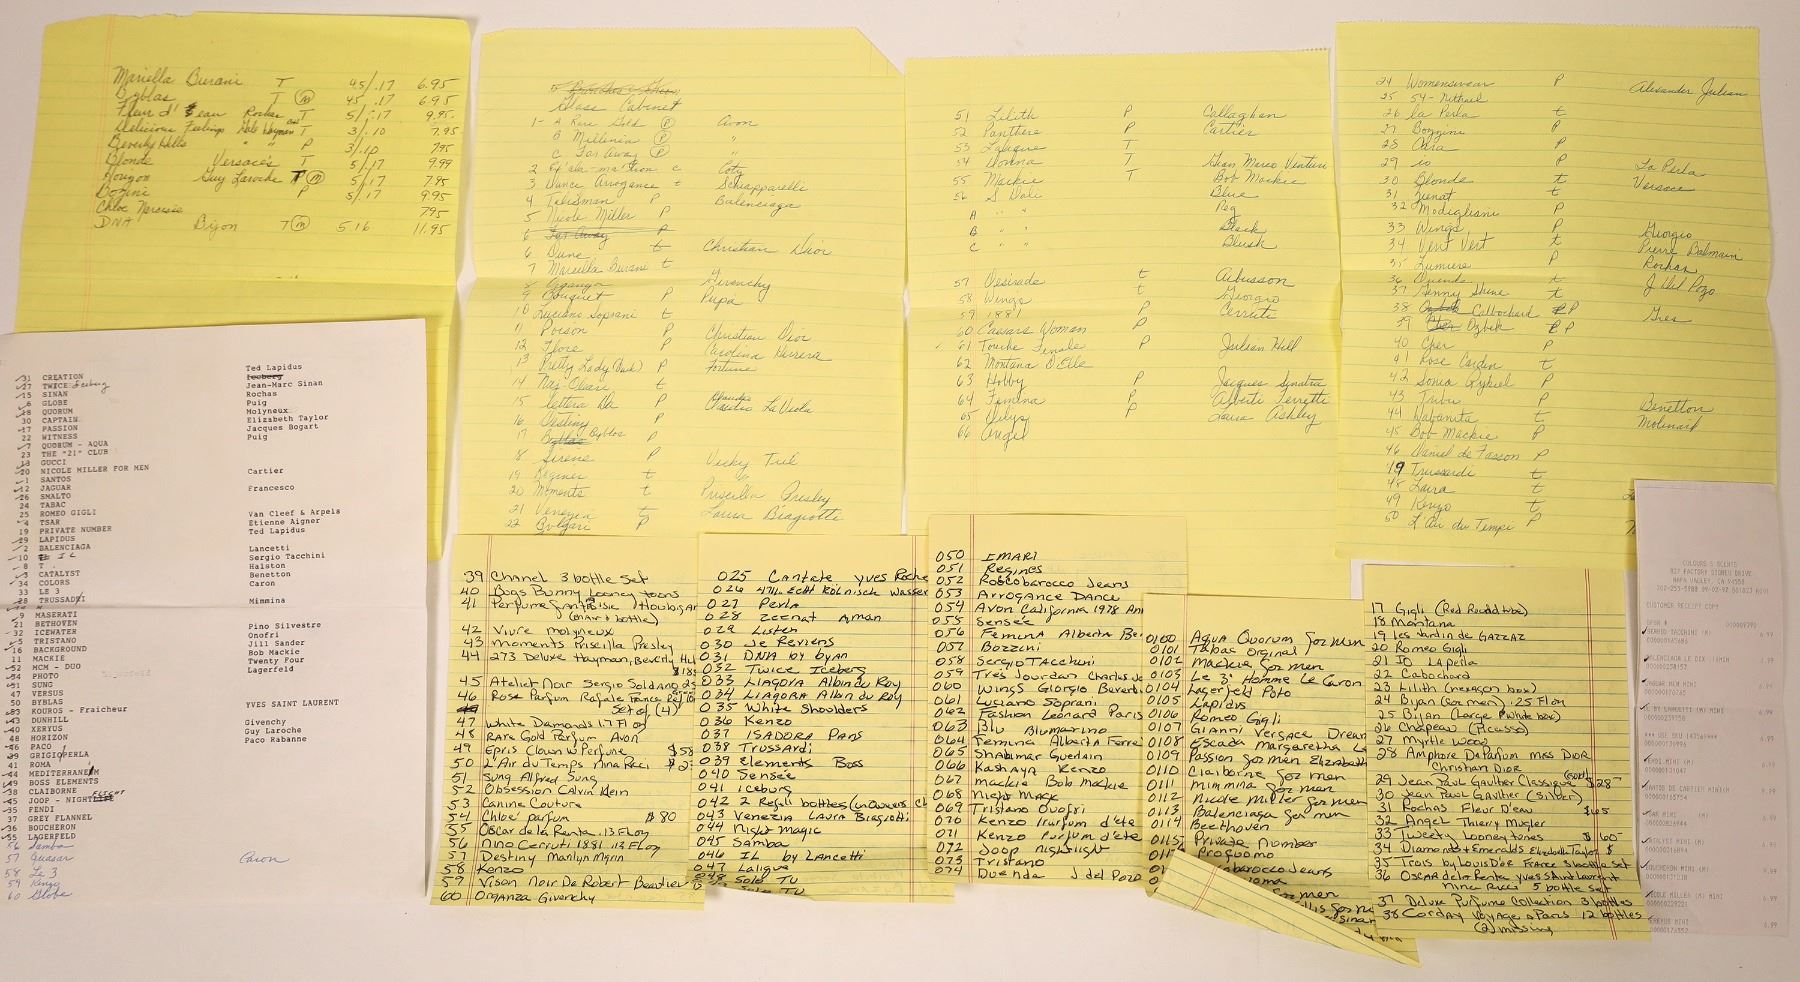 Mariella Burani T 45/.17 6.95
Byblas T (m) 45 .17 6.95
Fleur d' eau Rochas T 5/.17 9.95
Delicious Feelings Gale Hayman T 3/.10 7.95
Beverly Hills " " P 3/.10 7.95
Blonde Versace's T 5/.17 9.99
Horizon Guy Laroche T (m) 5/.17 7.95
Bozzini P 5/.17 9.95
Chloe Narcisse 7.95
DNA Bijon T (m) 5 .16 11.95
Glass Cabinet
1- A Rare Gold (P) Avon
B Millenia (P) "
C Far Away (P) "
2 Ex'cla-ma'tion c Coty
3 Dance Arrogance t Schiapparelli
4 Talisman P Balenciaga
5 Nicole Miller P
6 Far Away P
6 Dune t Christian Dior
7 Mariella Burani t
8 Organza Givenchy
9 Bouquet P Pupa
10 Luciano Soprani t
11 Poison P Christian Dior
12 Flore P Carolina Herrera
13 Pretty Lady (Duck) P Fortune
14 Naj-Oleari t
15 Lettera Da P Claudio La Viola
16 Destiny P
17 Byblos P
18 Sirene P Vicky Tiel
19 Regines t
20 Moments t Priscilla Presley
21 Venezia t Laura Biagiotti
22 Bvlgari P
51 Lilith P Callaghan
52 Panthere P Cartier
53 Lalique T
54 Donna T Gian Marco Venturi
55 Mackie T Bob Mackie
56 S Dali Blue
A " " Peg
B " " Black
C " " Blush
57 Desirade t Aubusson
58 Wings t Georgio
59 1881 P Cerruti
60 Caesars Woman P
61 Touche Finale P Julian Hill
62 Montana D'Elle
63 Hobby P Jacques Sinatra
64 Femina P Alberti Ferretti
65 Dilys P Laura Ashley
66 Angel
24 Womenswear P Alexander Julian
25 54-Nithael
26 La Perla t
27 Bozzini P
28 Cara P
29 io P La Perla
30 Blonde t Versace
31 Zeenat t
32 Modigliani P
33 Wings P Giorgio
34 Vert Vert t Pierre Balmain
35 Lumiere P Rochas
36 Duende t J Del Pozo
37 Jenny Shine t
38 Calbochard P Gres
39 Ozbek P
40 Cher P
41 Rose Cardin t
42 Sonia Rykiel P
43 Tribu P Benetton
44 Habanita t Molinard
45 Bob Mackie P
46 Daniel de Fasson P
49 Trussardi t
48 Laura t
49 Kenzo t
50 L'Air du Temps P
31 CREATION Ted Lapidus
27 TWICE: Iceberg Iceberg
15 SINAN Jean-Marc Sinan
6 GLOBE Rochas
18 QUORUM Puig
30 CAPTAIN Molyneux
17 PASSION Elizabeth Taylor
22 WITNESS Jacques Bogart
7 QUORUM - AQUA Puig
23 THE "21" CLUB
13 GUCCI
20 NICOLE MILLER FOR MEN
1 SANTOS Cartier
12 JAGUAR
26 SMALTO Francesco
24 TABAC
25 ROMEO GIGLI
4 TSAR Van Cleef & Arpels
19 PRIVATE NUMBER Etienne Aigner
29 LAPIDUS Ted Lapidus
2 BALENCIAGA
10 IL Lancetti
8 T. Sergio Tacchini
3 CATALYST Halston
34 COLORS Benetton
33 LE 3 Caron
28 TRUSSARDI
14 M Mimmina
9 MASERATI
21 BETHOVEN
32 ICEWATER Pino Silvestre
5 TRISTANO Onofri
16 BACKGROUND Jill Sander
11 MACKIE Bob Mackie
52 MCM - DUO Twenty Four
54 PHOTO Lagerfeld
51 SUNG
47 VERSUS
50 BYBLAS
53 KOUROS - Fraicheur YVES SAINT LAURENT
43 DUNHILL
40 XERYUS Givenchy
48 HORIZON Guy Laroche
46 PACO Paco Rabanne
39 GRIGIOPERLA
41 ROMA
44 MEDITERRANEUM
49 BOSS ELEMENTS
38 CLAIBORNE
45 JOOP - NIGHTFLIGHT
35 FENDI
37 GREY FLANNEL
36 BOUCHERON
55 LAGERFELD
56 Samba
57 Quasar
58 Le 3 Caron
59 Kenzo
60 Globe
39 Chanel 3 bottle Set
40 Bugs Bunny Looney toons
41 Perfume Fantasie Houbigant
(mar + bottle)
42 Vivre molyneux
43 moments Priscilla Presley
44 273 Deluxe Hayman, Beverly Hills
45 Atelier Noir Sergio Soldano
46 Rose Parfum Rafale France
Set of (4)
47 White Damands 1.7 Fl oz
48 RARe Gold Parfum Avon
49 Epris Clown W Perfume $58
50 L'Air du Temps nina Ricci
51 Sung Alfred Sung
52 Obsession Calvin Klein
53 Canine Couture
54 Chloe' parfum $80
55 Oscar de la Renta .13 FL oz
56 Nino Cerruti 1881 .13 FL oz
57 Destiny Marilyn Mgrin
58 Kenzo
59 Vison Noir De Robert Beautier
60 Organza Givenchy
025 Cantate yves Roche
026 4711. Echt Kölnisch Wasser
027 Perla
028 Zeenat Aman
029 Listen
030 Je Reviens
031 DNA by byan
032 Twice Iceberg
033 LIAGORA Albin du Roy
034 LIAGORA Albin du Roy
035 White Shoulders
036 Kenzo
037 ISADORA Paris
038 Trussardi
039 Elements Boss
040 Senseé
041 iceburg
042 2 Refill bottles
043 Venezia LAURA Biagiotti
044 Night Magic
045 Samba
046 IL by LAncetti
047 Lalique
048 Solo Tu
050 IMARI
051 Regines
052 Roccobarocco Jeans
053 Arrogance Dance
054 Avon California 1978
055 Senseé
056 Femina Alberta
057 Bozzini
058 Sergio TAcchini
059 Tres Jourdan Charles Jo
060 Wings Giorgio
061 Luciano Soprani
062 Fashion Leonard Paris
063 Blu Blumarino
064 Femina Alberta Ferre
065 Shalimar Guerlain
066 Kashaya Kenzo
067 mackie Bob Mackie
068 Night Magic
069 Tristano Ovofri
070 Kenzo Parfum d'été
071 Kenzo Parfum d'été
072 Joop nightflight
073 Tristano
074 Duenda J del Pozo
0100 Aqua Quorum for men
0101 Tabac Original for men
0102 Mackie for men
0103 Le 3e Homme Le Caron
0104 Lagerfeld Foto
0105 Lapidus
0106 Romeo Gigli
0107 Gianni Versace Dream
0108 Escada Margaretha L
0109 Passion for men Elizabeth
0110 Claiborne for men
0111 Mimmina for men
0112 Nicole Miller for men
0113 Balenciaga for men
0114 Beethoven
0115 Private Number
Profuomo
obarocco Jeans
oma
for men
17 Gigli (Red Redd tube)
18 Montana
19 Les Jardin de GAZZAZ
20 Romeo Gigli
21 IO LaPerla
22 Cabochard
23 Lilith (hexagon box)
24 Byan (for men) .25 Fl on
25 Bijan (Large Pwhite box)
26 Chapeau (Picasso)
27 Myrtle Wood
28 Amphore DeParfum mas Dior
Christian Dior
29 Jean Paul Gaultier Classique (Gold) $28
30 Jean Paul Gaultier (Silver)
31 Rochas Fleur D'eau $65
32 Angel Thierry Mugler
33 Tweety Looney tones $65
34 Diamonds + Emeralds Elizabeth Taylor $
35 Trois by Louis D'or France 3 bottle Set
36 OSCAR de la Renta yves Saint Laurent
nina Ricci 5 bottle set
37 Deluxe Perfume Collection 3 bottles
38 Corday Voyage a Paris 12 bottles
(2) missing
COLOURS & SCENTS
NAPA VALLEY, CA 94558
CUSTOMER RECEIPT COPY
SERGIO TACCHINI (M) 6.99
BALENCIAGA LE DIX
JAGUAR MEN MINI
IL BY LANCETTI (M) MINI
FENDI MINI
SANTOS DE CARTIER
TSAR MINI (M)
CATALYST MINI (M)
BOUCHERON MINI (M)
NICOLE MILLER (M) MINI
XERYUS MINI 6.99